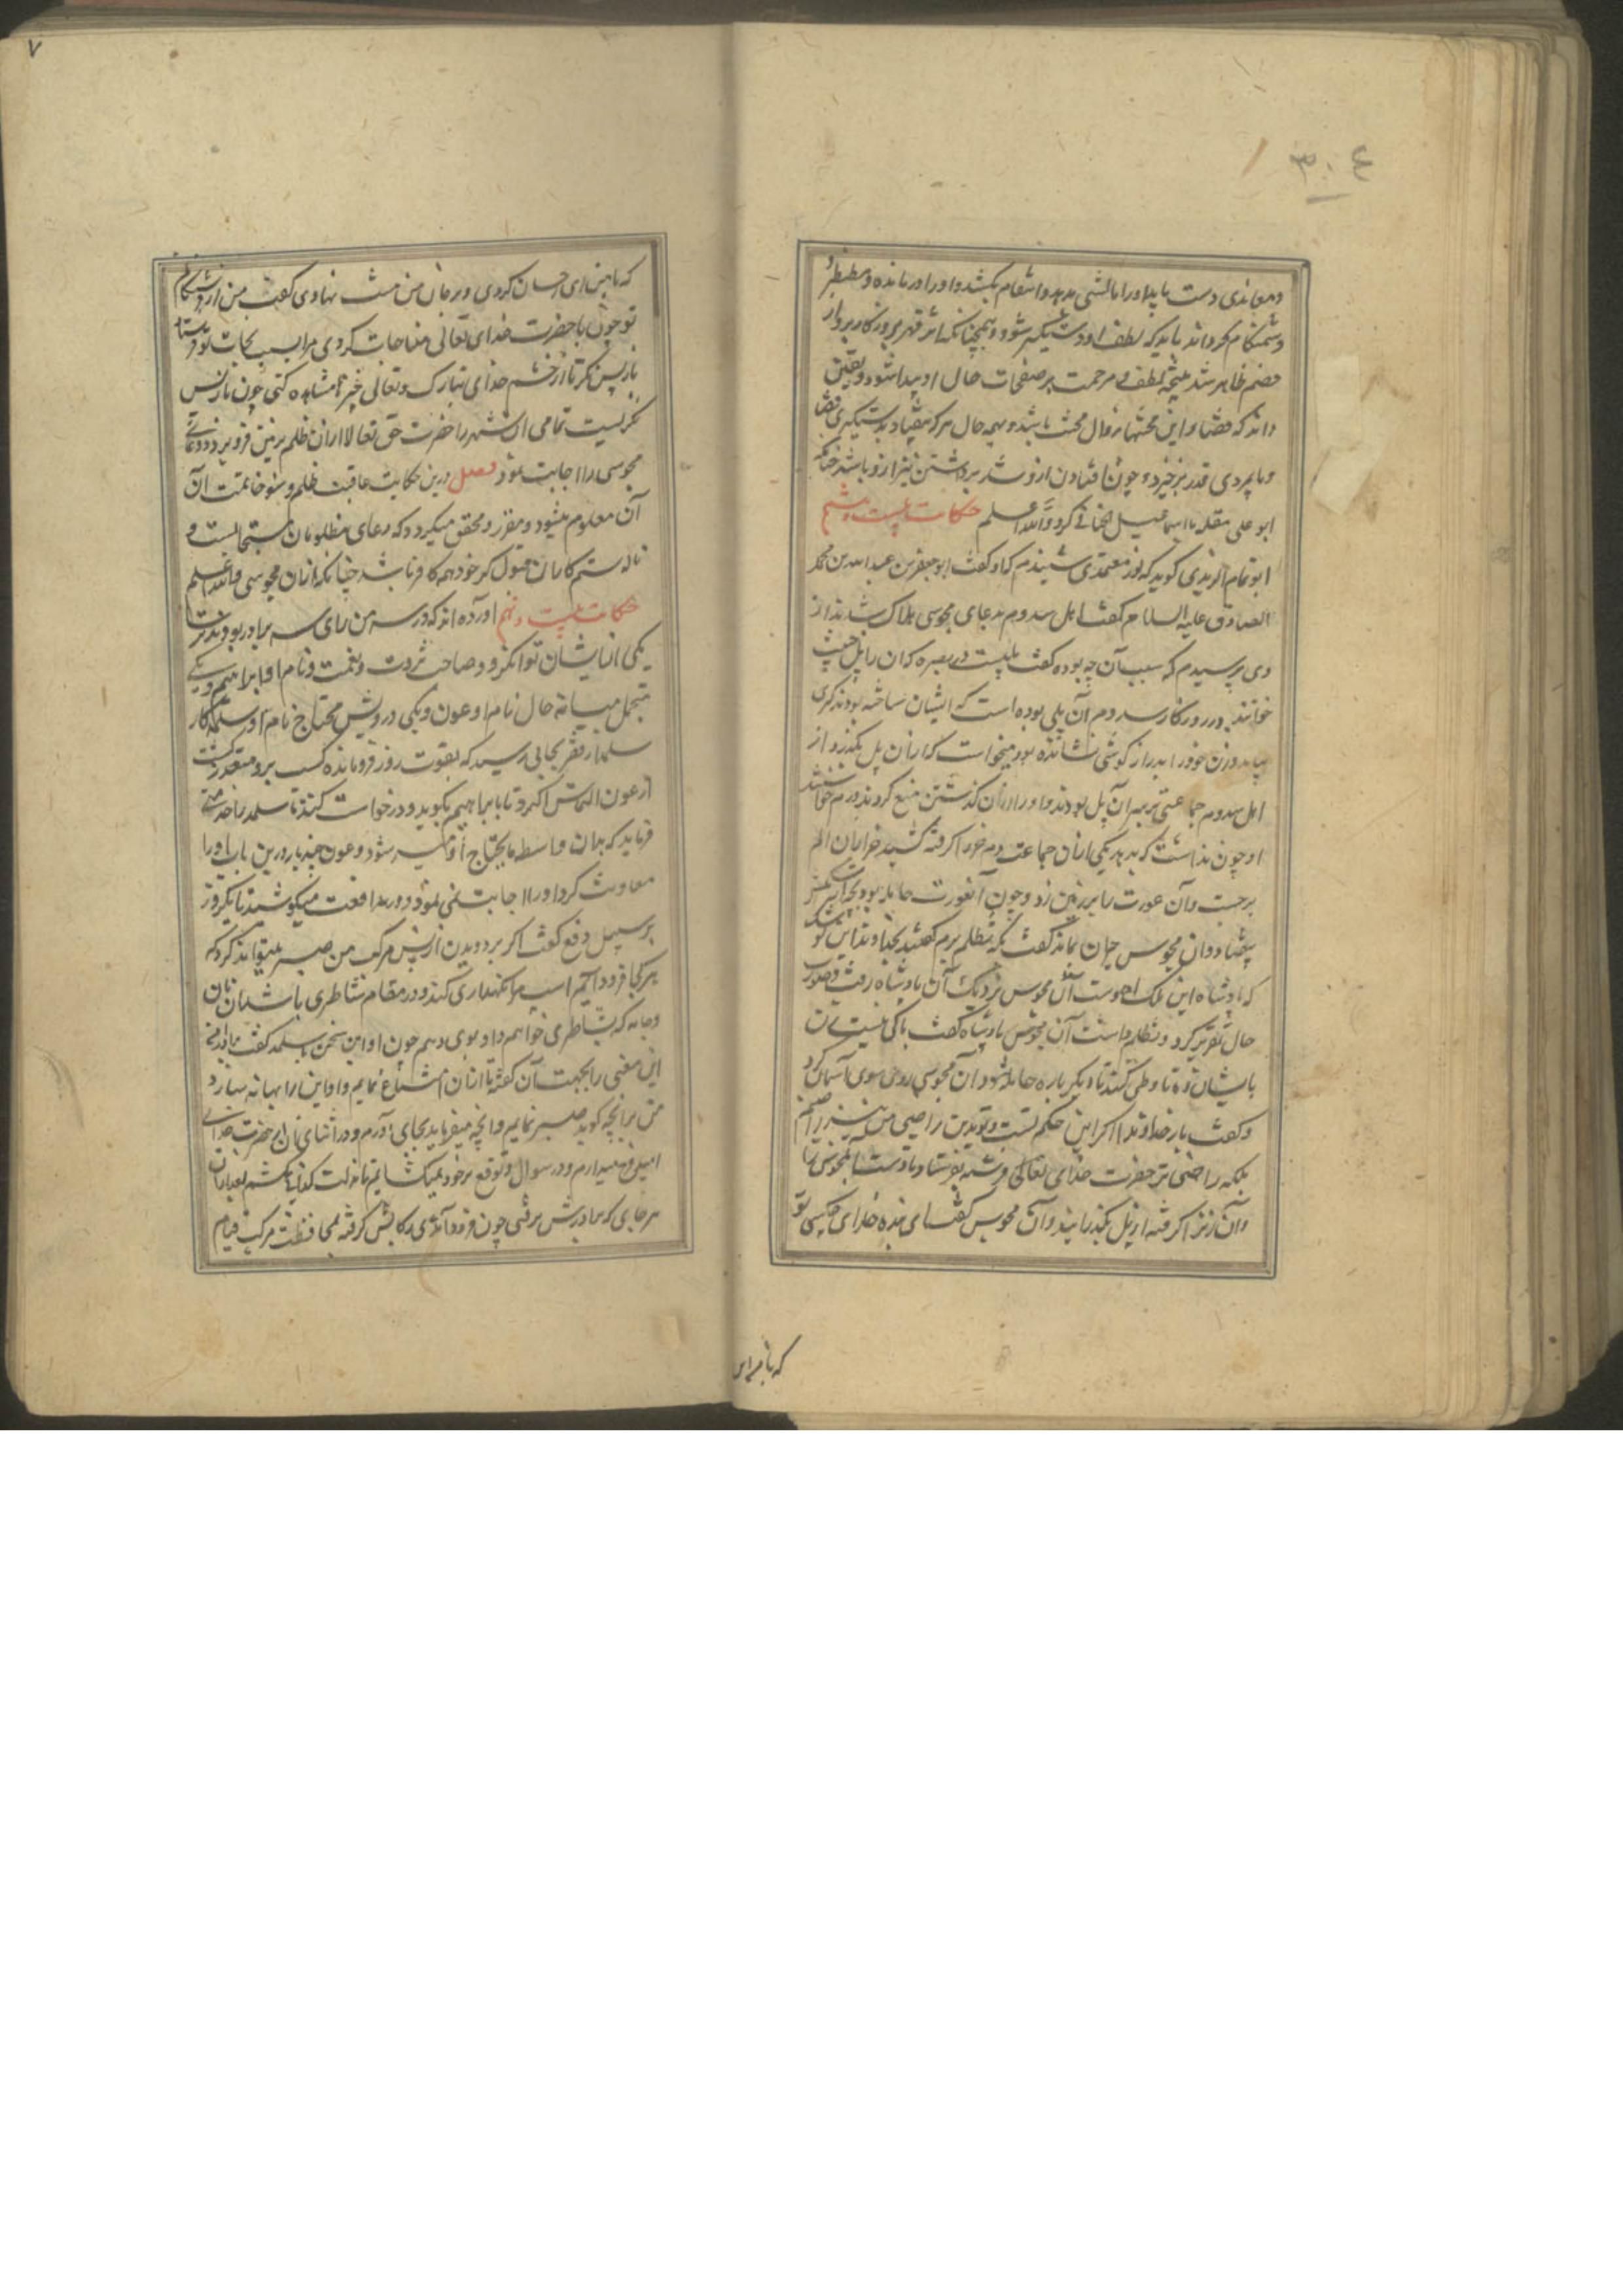 ۳۰۴
ومعاندی دست یابد او را مالشی بدهد و انتقام بکشد و او را درمانده و مضطر
و دشمنکام گرداند باید که لطف او دستگیر شود و همچنانکه اثر قهر بروزکار
خصم ظاهر شد نتیجه لطف و مرحمت بر صفحات حال او پیدا شود و یقین
داند که قضا و این محنتها زوال محنت باشد و بهمه حال هر که بیفتد بدستگیری قضا
و پایمردی قدر برخیزد و چون افتادن ازو شد برداشتن نیز ازو باشد چنانکه
ابو علی مقله با اسماعیل کرد والله اعلم حکایت بیست و هشتم
ابو تمام گوید که از معتمدی شنیدم که او گفت ابو جعفر بن عبدالله بن محمد
الصادق علیه السلام گفت اهل سدوم بدعای مجوسی هلاک شدند از
وی پرسیدم که سبب آن چه بوده گفت پلیست در بصره که آن را پل
خوانند و در روزگار سدوم آن پلی بوده است که ایشان ساخته بودند
بیامد و زن خود را بر درازگوشی نشانده بود میخواست که از آن پل بگذرد از
اهل سدوم جماعتی بر سر آن پل بودند و او را از آن گذشتن منع کردند و درم خواستند
او چون نداشت که بدهد یکی از آن جماعت دم خر را گرفته کشید خر از آن الم
برجست و آن عورت را بر زمین زد و چون آنعورت حامله بود بچه
بیفتاد و آن مجوس حیران بماند گفت تظلم برم گفتند
که پادشاه این ملک اوست آن مجوس نزدیک آن پادشاه رفت و صورت
حال تقریر کرد و تظلم داشت آن مجوس پادشاه گفت باکی نیست زن
بایشان ده تا وطی کنند تا دیگر باره حامله شود آن مجوسی روی سوی آسمان کرد
و گفت بار خداوندا اگر این حکم تست و تو بدین راضیی من نیز راضیم
بلکه راضی تر حضرت خدای تعالی فرشته بفرستاد تا دست مجوس را
و آن زنرا گرفته از پل بگذرانید و آن مجوس گفت ای بنده خدای چه کسی تو
که با من این
۷
که با من این احسان کردی و بر جان من منت نهادی گفت من از فرشتگانم
تو چون با حضرت خدای تعالی مناجات کردی مرا بسبب نجات تو فرستاد
باز پس نگر تا از خشم خدای تبارک و تعالی خبر ها مشاهده کنی چون باز پس
نگریست تمامی آن شهر را حضرت حق تعالی از آن ظلم بزمین فرو برد و دعای
مجوسی را اجابت نمود فصل درین حکایت عاقبت ظلم و سوء خاتمت آن
آن معلوم میشود و مقرر و محقق میگردد که دعای مظلومان مستجابست و
ناله ستم کاران قبول گر خود هم کافر باشد چنانکه از آن مجوسی والله اعلم
حکایت بیست و نهم آورده اند که در سر من رای سه برادر بودند
یکی از ایشان توانگر و صاحب ثروت و نعمت و نام او ابراهیم و یکی
متجمل میانه حال نام او عون و یکی درویش محتاج نام او سلمه کار
سلمه از فقر بجائی رسید که بقوت روز فرو مانده کسب برو متعذر گشت
از عون التماس کرد تا با ابراهیم بگوید و درخواست کند تا سلمه را خدمتی
فرماید که بدان واسطه مایحتاج او میسر شود و عون چند بار درین باب او را
معاونت کرد او را اجابت نمی نمود و در مدافعت میکوشید تا یکروز
بر سبیل دفع گفت اگر بر دویدن از پس مرکب من صبر میتواند کرد که
هر کجا فرود آیم اسب مرا نگهداری کند و در مقام شاطری باشد آن نان
و جامه که بشاطری خواهم داد بوی دهم چون او این سخن با سلمه گفت
این معنی را بجهت آن گفته تا از آن امتناع نمایم و او این را بهانه سازد
من بر آنچه گوید صبر نمایم و آنچه میفرماید بجای آورم و در اثنای آن از حضرت خدای
امید میدارم و در سوال و توقع بر خود نمیکشایم تا مذلت کدائی نکشم بعد از آن
هر جای که برادرش برفتی چون فرود آمدی رکابش گرفته بمحافظت مرکب قیام